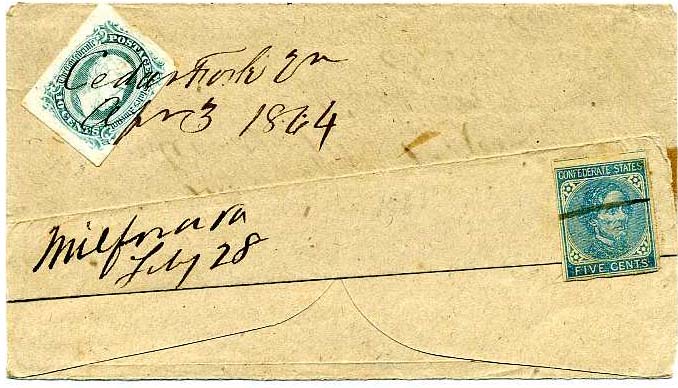 Cedar Fork Va
Apr 3 1864
POSTAGE
TEN CENTS
Milford Va
July 28
CONFEDERATE STATES
FIVE CENTS